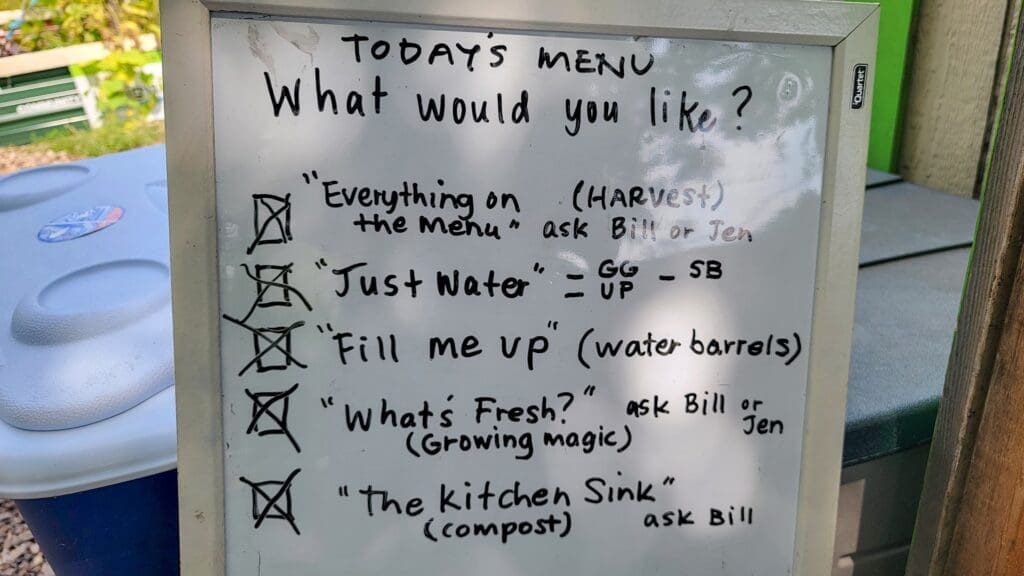 TODAY'S MENU
What would you like?
"Everything on (HARVEST)
the Menu" ask Bill or Jen
"Just Water" = GG UP - SB
"Fill me up" (water barrels)
"What's Fresh?" ask Bill or Jen
(Growing magic)
"The Kitchen Sink"
(compost) ask Bill
Quartet